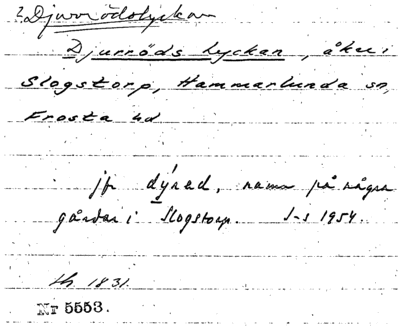 ? Djurrödslyckan
Djurröds Lyckan, åker i
Slogstorp, Hammarlunda sn,
Frosta hd
jfr dýrəd, namn på några
gårdar i Slogstorp. I-s 1954.
1831.
Nr 5553.